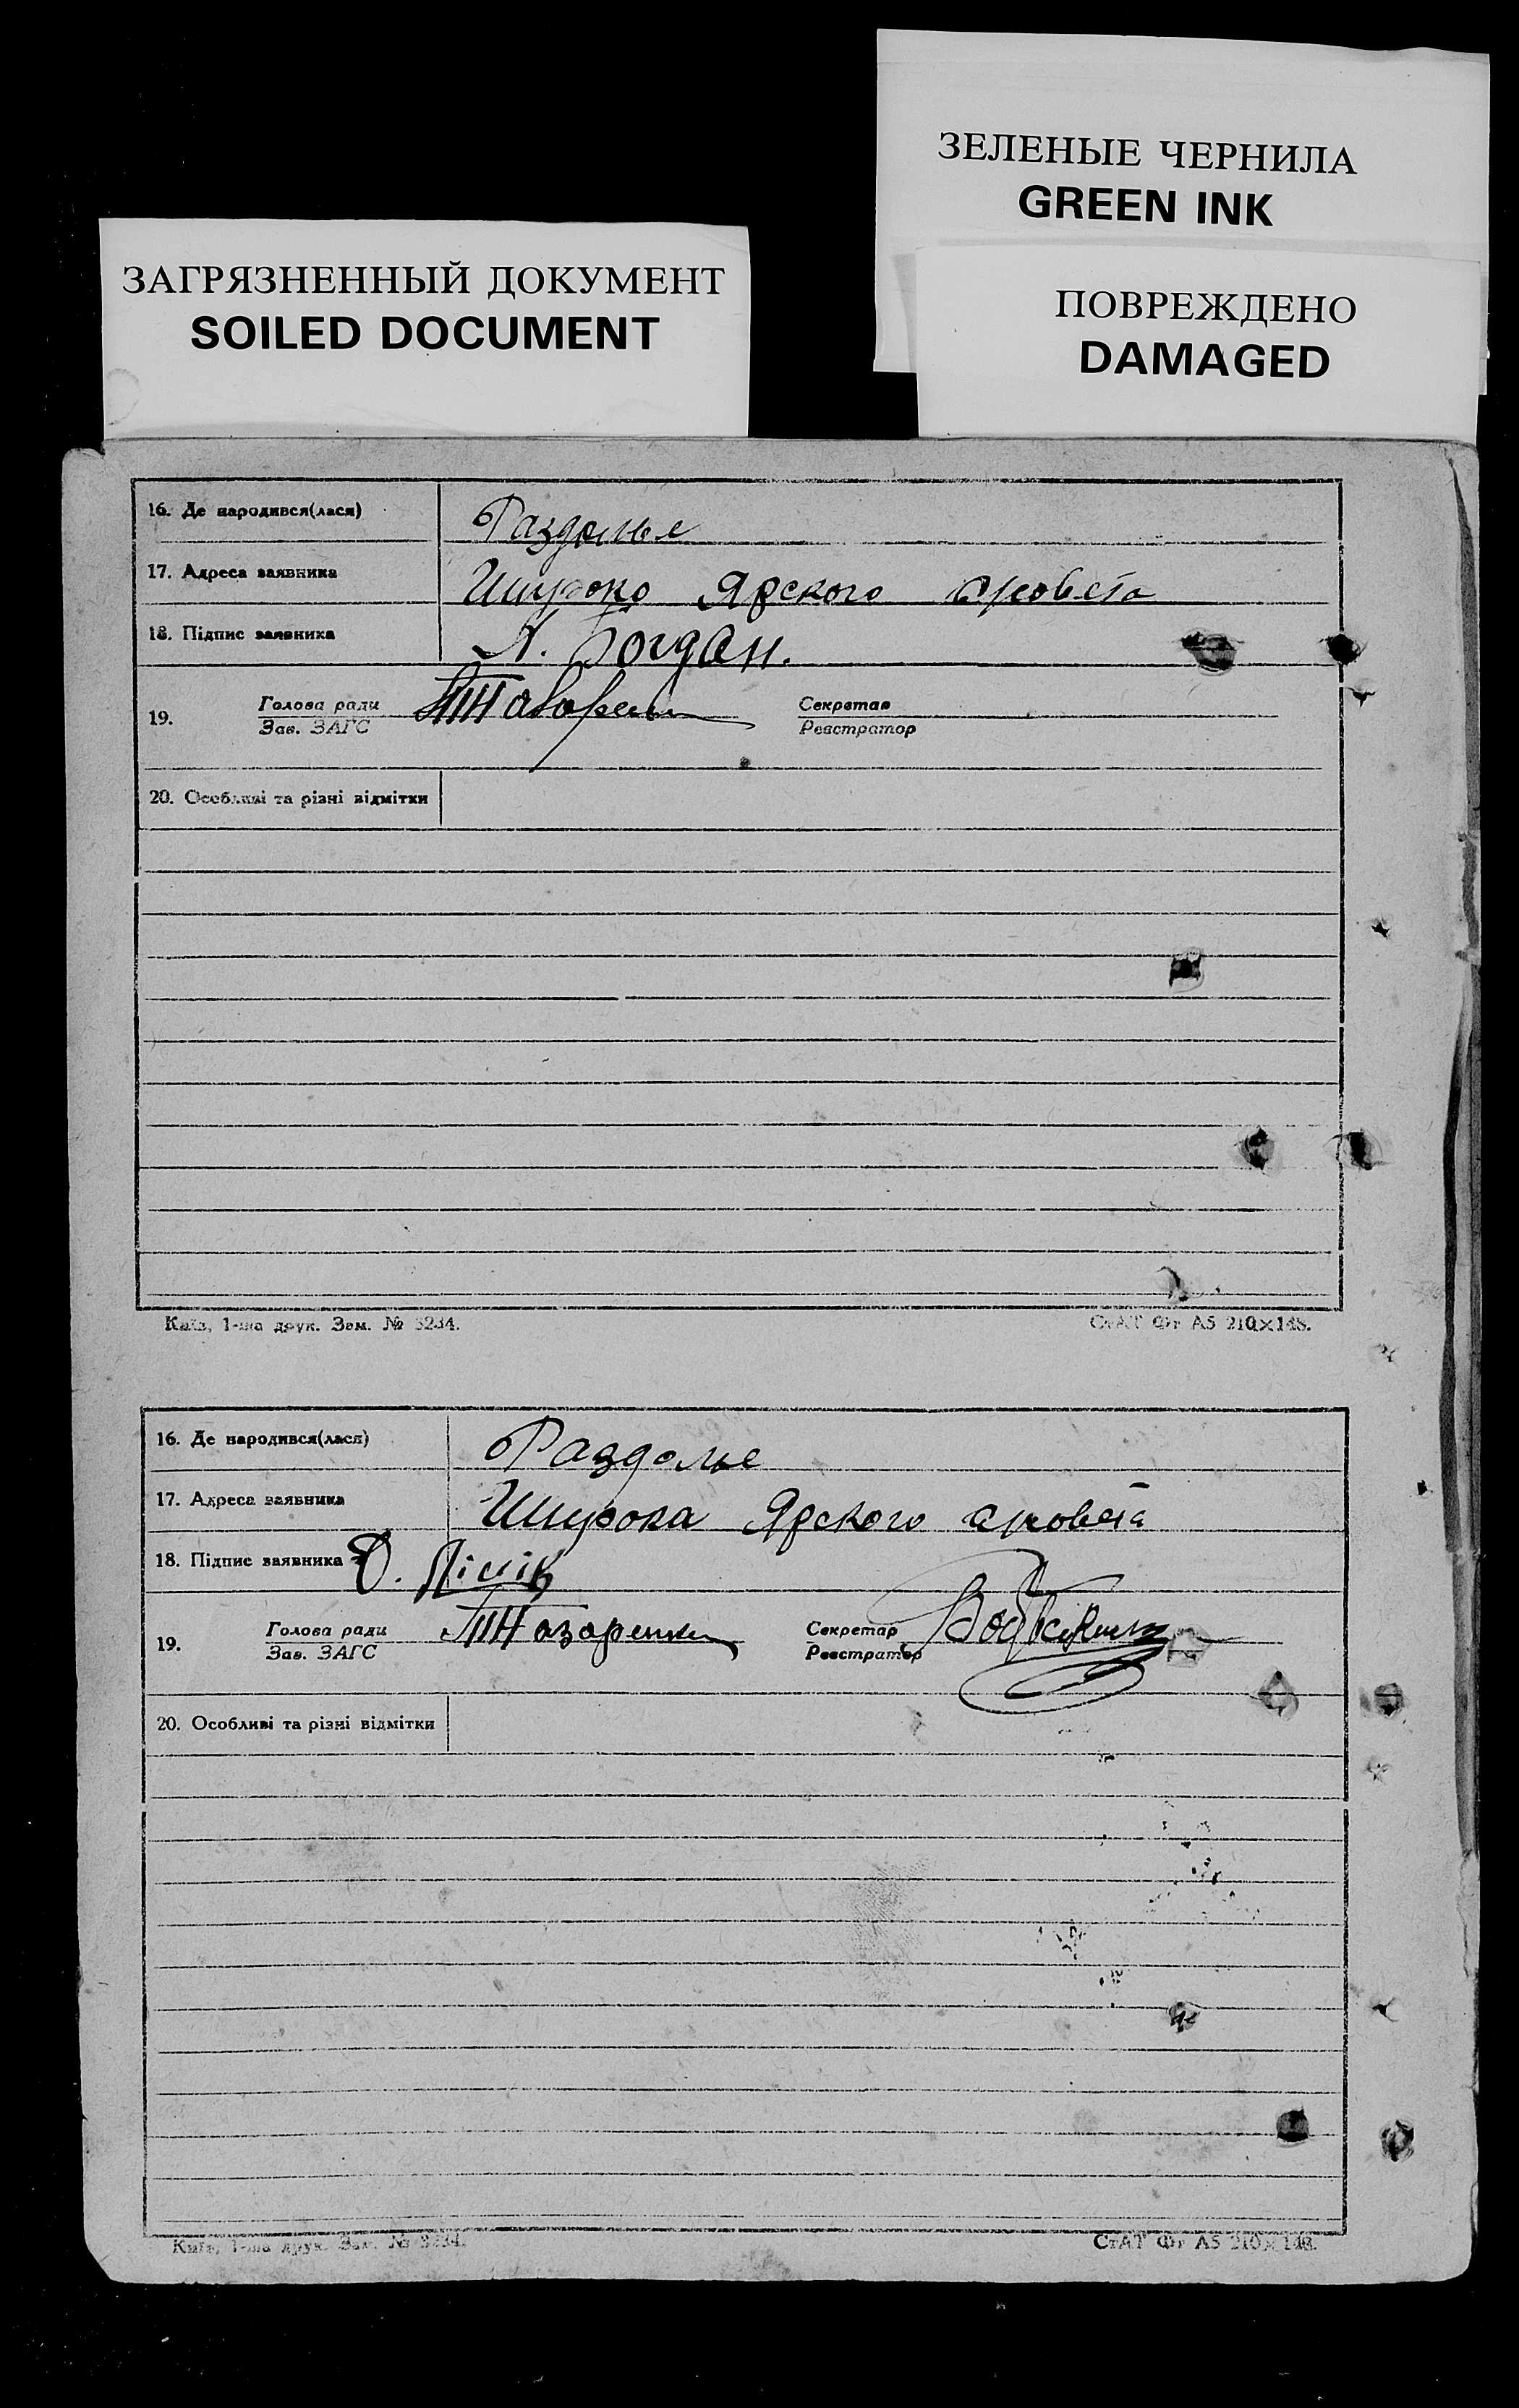 ЗЕЛЕНЫЕ ЧЕРНИЛА
GREEN INK
ЗАГРЯЗНЕННЫЙ ДОКУМЕНТ
SOILED DOCUMENT
ПОВРЕЖДЕНО
DAMAGED
16. Де народився(лася) Раздолье
17. Адреса заявника Широко Ярского с/совета
18. Підпис заявника Богдан.
19. Голова ради Секретар
Зав. ЗАГС Реєстратор
20. Особливі та різні відмітки
Київ, 1-ша друк. Зам. № 3234. СтАТ Фт А5 210×148.
16. Де народився(лася) Раздолье
17. Адреса заявника Широка Ярского с/совета
18. Підпис заявника
19. Голова ради Назаренко Секретар
Зав. ЗАГС Реєстратор
20. Особливі та різні відмітки
Київ, 1-ша друк. Зам. № 3234. СтАТ Фт А5 210×148.